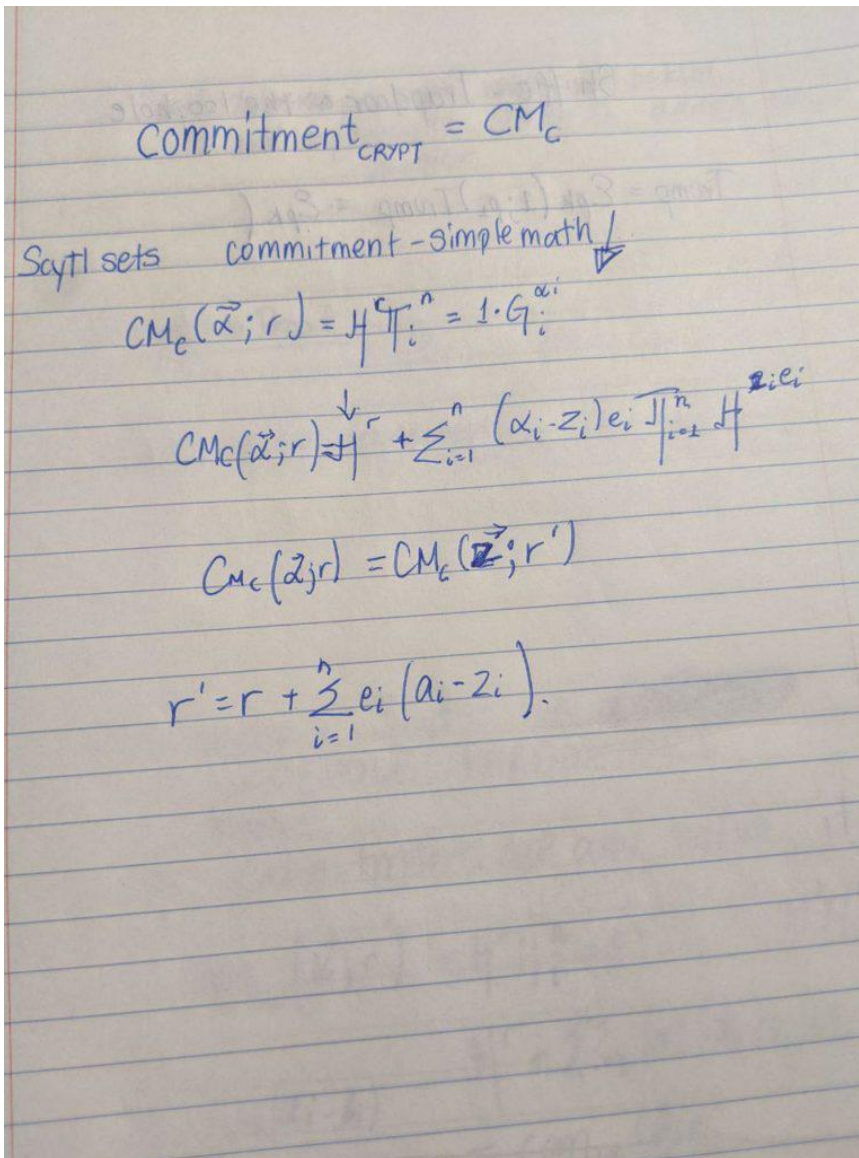 Commitment_CRYPT = CM_c
Scytl sets commitment - simple math!
CM_c(α⃗; r) = H^r π_i^n = 1·G_i^αi
↓
CM_c(α⃗; r) = H^r + Σ_{i=1}^n (αi - zi) ei π_{i=1}^n H^{zi ei}
CM_c(α⃗; r) = CM_c(z⃗; r')
r' = r + Σ_{i=1}^n ei (ai - zi).